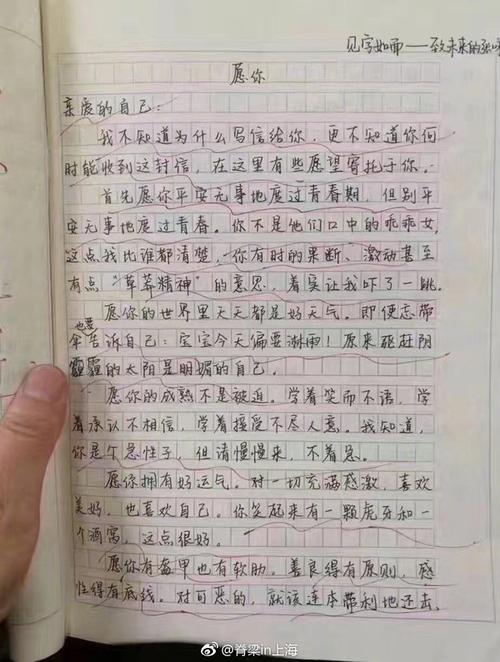 见字如面——致未来的张
愿你
亲爱的自己：
我不知道为什么写信给你，更不知道你何
时能收到这封信，在这里有些愿望寄托于你。
首先愿你平安无事地度过青春期，但别平
安无事地度过青春。你不是他们口中的乖乖女，
这点我比谁都清楚，你有时的果断、激动甚至
有点“草莽精神”的意思，着实让我吓了一跳。
愿你的世界里天天都是好天气。即便忘带
伞也要告诉自己：宝宝今天偏要淋雨！原来驱赶阴
霾的太阳是明媚的自己。
愿你的成熟不是被迫。学着笑而不语，学
着承认不相信，学着接受不尽人意。我知道，
你是个急性子，但请慢慢来，不着急。
愿你拥有好运气。对一切充满感激，喜欢
美好，也喜欢自己。你笑起来有一颗虎牙和一
个酒窝，这点很好。
愿你有盔甲也有软肋。善良得有原则，感
性得有底线。对可恶的，就该连本带利地还击。
@脊梁in上海